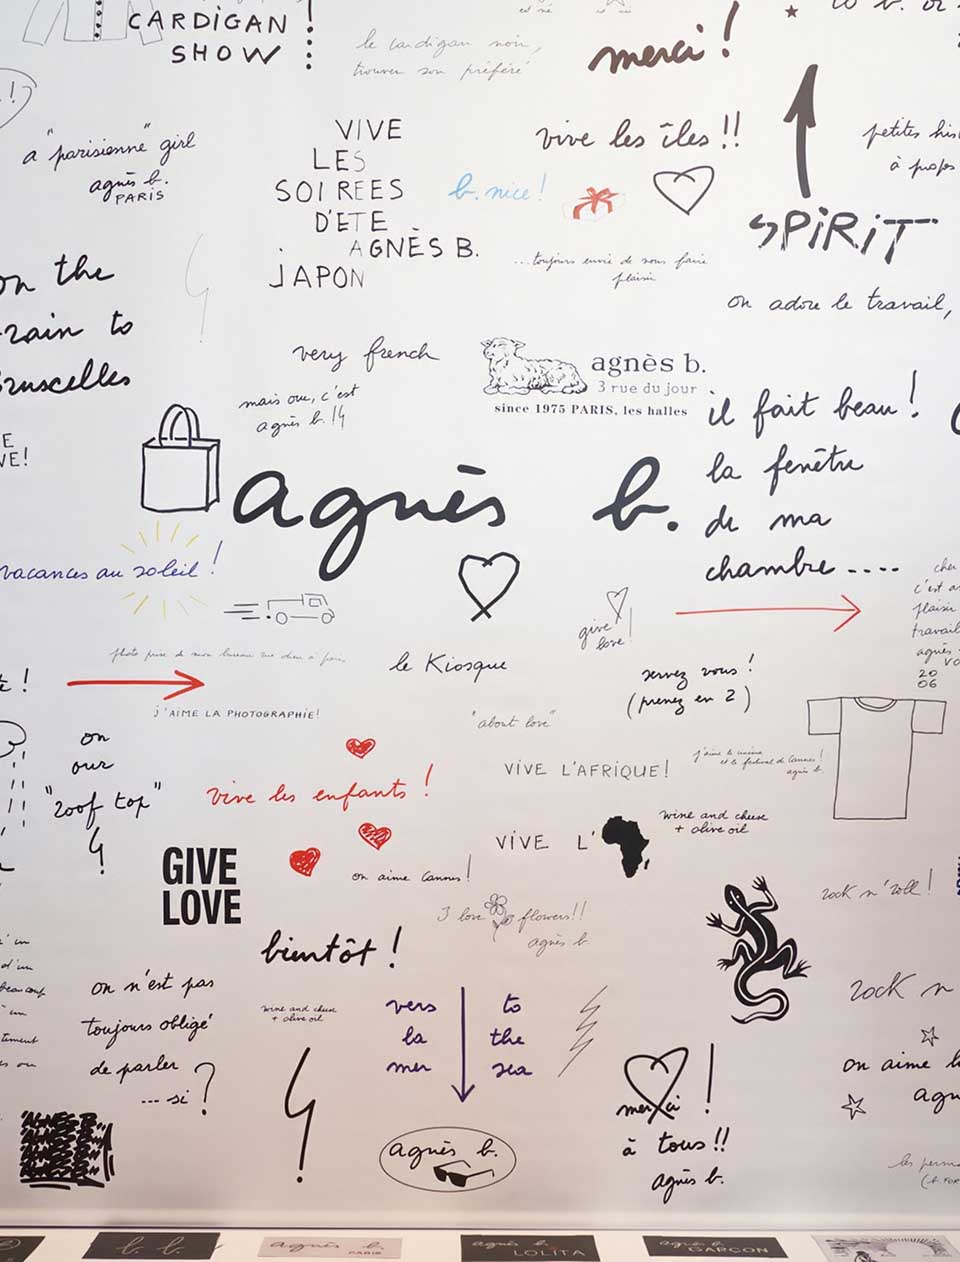 CARDIGAN
SHOW
le cardigan noir,
trouver son préféré
merci !
a "parisienne" girl
agnès b.
PARIS
VIVE
LES
SOIREES
D'ETE
AGNÈS B.
JAPON
vive les îles !!
b. nice !
petites
à propos
SPIRIT
...toujours envie de vous faire
plaisir
on the
train to
Bruxelles
on adore le travail,
very french
mais oui, c'est
agnès b. !
agnès b.
3 rue du jour
since 1975 PARIS, les halles
il fait beau !
la fenêtre
de ma
chambre ....
VE!
agnès b.
vacances au soleil !
give love !
c'est
plaisir
travail
agnès
20
06
photo prise de mon bureau rue dieu à paris
J'AIME LA PHOTOGRAPHIE!
le Kiosque
servez vous !
(prenez en 2)
"about love"
on
our
"roof top"
vive les enfants !
VIVE L'AFRIQUE!
j'aime le cinéma
et le festival de Cannes !
agnès b.
VIVE L'
wine and cheese
+ olive oil
GIVE
LOVE
on aime Cannes !
rock n' roll !
3 love flowers !!
agnès b.
bientôt !
on n'est pas
toujours obligé
de parler
... si ?
wine and cheese
+ olive oil
vers
la
mer
to
the
sea
rock n
on aime
merci !
à tous !!
agnès b.
AGNÈS B.
agnès b.
b. b.
agnès b.
PARIS
agnès b.
LOLITA
agnès b.
GARÇON